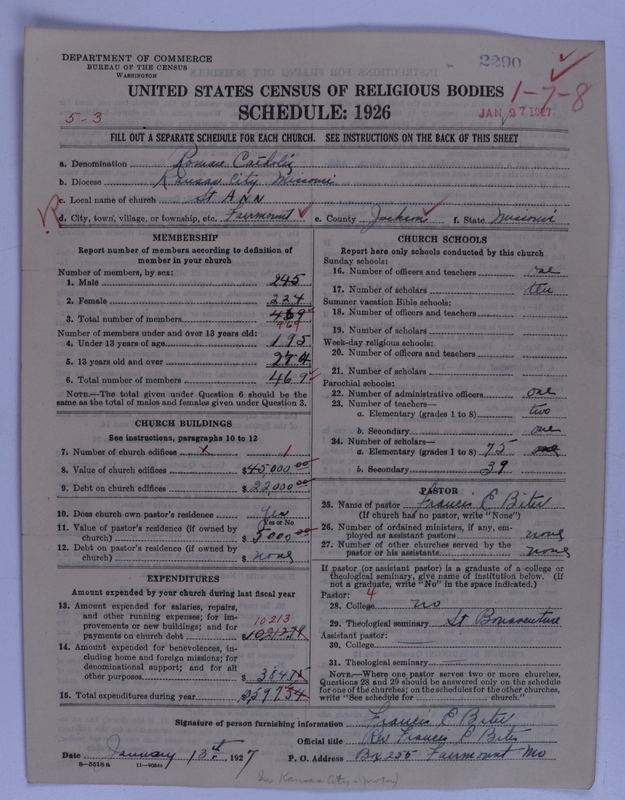 DEPARTMENT OF COMMERCE
BUREAU OF THE CENSUS
WASHINGTON
2290
UNITED STATES CENSUS OF RELIGIOUS BODIES
1-7-8
SCHEDULE: 1926
5-3
JAN 27 1927
FILL OUT A SEPARATE SCHEDULE FOR EACH CHURCH. SEE INSTRUCTIONS ON THE BACK OF THIS SHEET
a. Denomination Roman Catholic
b. Diocese Kansas City Missouri
c. Local name of church St Ann
d. City, town, village, or township, etc. Fairmount e. County Jackson f. State Missouri
MEMBERSHIP
Report number of members according to definition of
member in your church
Number of members, by sex:
1. Male 245
2. Female 224
3. Total number of members 469
469
Number of members under and over 13 years old:
4. Under 13 years of age 195
5. 13 years old and over 274
6. Total number of members 469
NOTE.—The total given under Question 6 should be
same as the total of males and females given under Question 3.
CHURCH BUILDINGS
See instructions, paragraphs 10 to 12
7. Number of church edifices 1
8. Value of church edifices $45,000.00
9. Debt on church edifices $22,000.00
10. Does church own pastor's residence? yes
Yes or No
11. Value of pastor's residence (if owned by
church) $5000.00
12. Debt on pastor's residence (if owned by
church) $none
EXPENDITURES
Amount expended by your church during last fiscal year
13. Amount expended for salaries, repairs,
and other running expenses; for im-
provements or new buildings; and for
payments on church debt
10213
14. Amount expended for benevolences, in-
cluding home and foreign missions; for
denominational support; and for all
other purposes $
15. Total expenditures during year
CHURCH SCHOOLS
Report here only schools conducted by this church
Sunday schools:
16. Number of officers and teachers one
17. Number of scholars ten
Summer vacation Bible schools:
18. Number of officers and teachers
19. Number of scholars
Week-day religious schools:
20. Number of officers and teachers
21. Number of scholars
Parochial schools:
22. Number of administrative officers one
23. Number of teachers—
a. Elementary (grades 1 to 8) two
b. Secondary one
24. Number of scholars—
a. Elementary (grades 1 to 8) 75
b. Secondary 39
PASTOR
25. Name of pastor Francis E
(If church has no pastor, write "None")
26. Number of ordained ministers, if any, em-
ployed as assistant pastors none
27. Number of other churches served by the
pastor or his assistants none
If pastor (or assistant pastor) is a graduate of a college or
theological seminary, give name of institution below. (If
not a graduate, write "No" in the space indicated.)
Pastor: 4
28. College no
29. Theological seminary St Bonaventure
Assistant pastor:
30. College
31. Theological seminary
NOTE.—Where one pastor serves two or more churches,
Questions 28 and 29 should be answered only on the schedule
for one of the churches; on the schedules for the other churches,
write "See schedule for church."
Signature of person furnishing information Francis E
Official title Rev Francis E
Date January 13th, 1927 P. O. Address Bx 255 Fairmount Mo
8-5518a